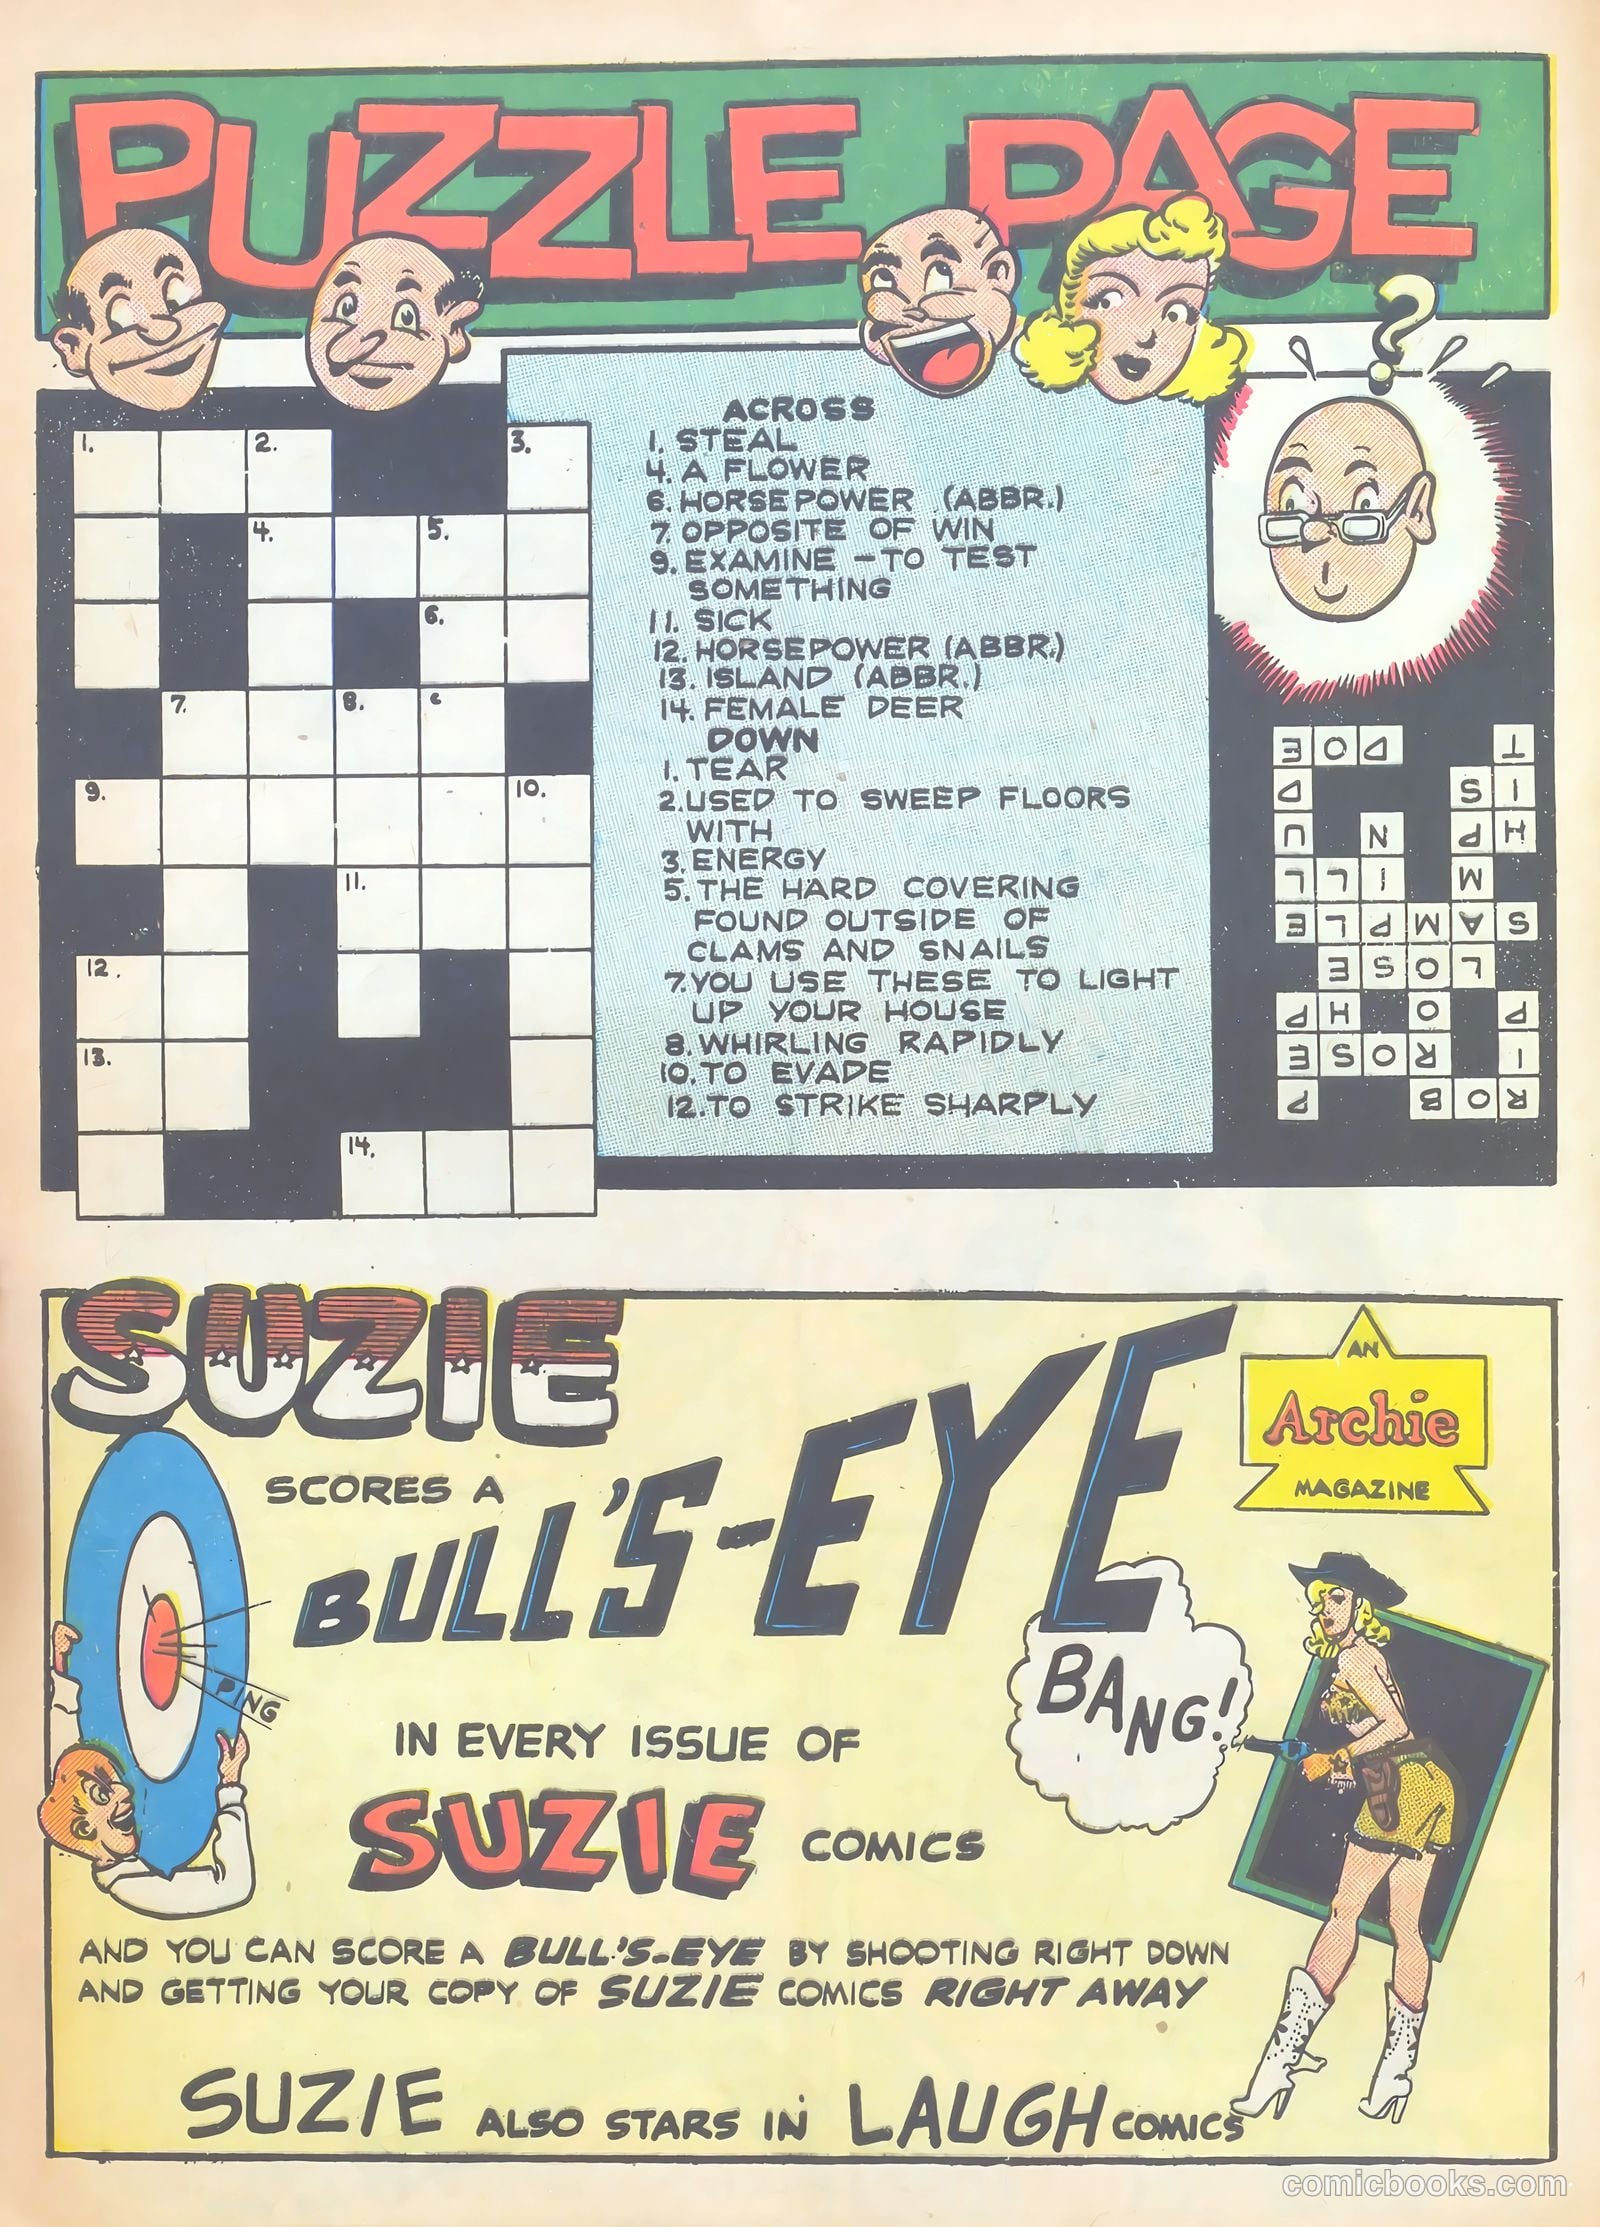 PUZZLE PAGE
?
1. 2. 3.
4. 5.
6.
7. 8. c
9. 10.
11.
12.
13.
14.
ACROSS
1. STEAL
4. A FLOWER
6. HORSEPOWER (ABBR.)
7. OPPOSITE OF WIN
9. EXAMINE - TO TEST
SOMETHING
11. SICK
12. HORSEPOWER (ABBR.)
13. ISLAND (ABBR.)
14. FEMALE DEER
DOWN
1. TEAR
2. USED TO SWEEP FLOORS
WITH
3. ENERGY
5. THE HARD COVERING
FOUND OUTSIDE OF
CLAMS AND SNAILS
7. YOU USE THESE TO LIGHT
UP YOUR HOUSE
8. WHIRLING RAPIDLY
10. TO EVADE
12. TO STRIKE SHARPLY
ROB P
I ROSE
P O HP
LOSE
SAMPLE
M ILL
HP N U
IS D
T DOE
SUZIE
SCORES A
BULL'S-EYE
AN
Archie
MAGAZINE
PING
BANG!
IN EVERY ISSUE OF
SUZIE COMICS
AND YOU CAN SCORE A BULL'S-EYE BY SHOOTING RIGHT DOWN
AND GETTING YOUR COPY OF SUZIE COMICS RIGHT AWAY
SUZIE ALSO STARS IN LAUGH COMICS
comicbooks.com